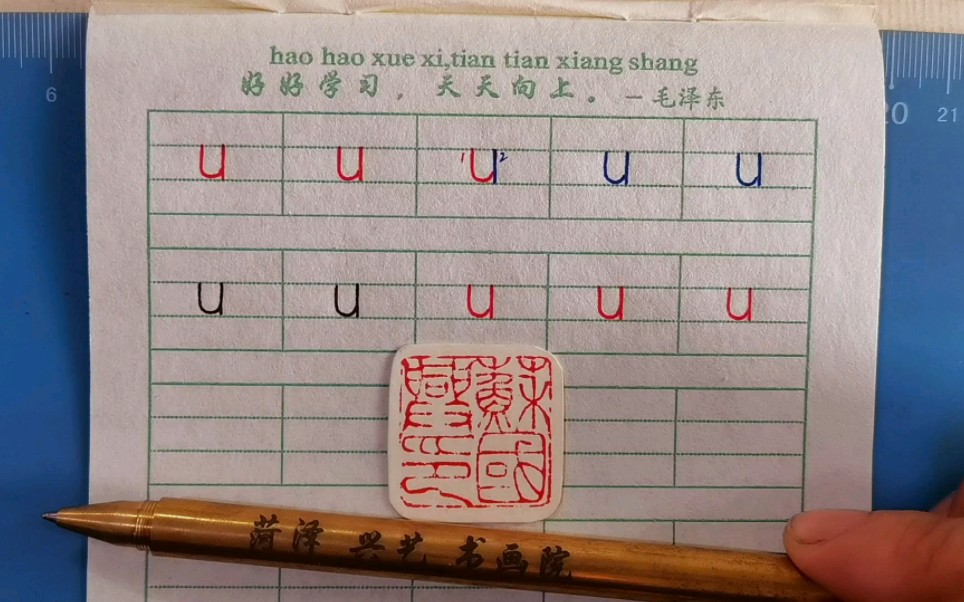 hao hao xue xi,tian tian xiang shang
好好学习，天天向上。－毛泽东
6 20 21
u u 1u2 u u
u u u u u
蘇國
印
菏泽 兴艺 书画院